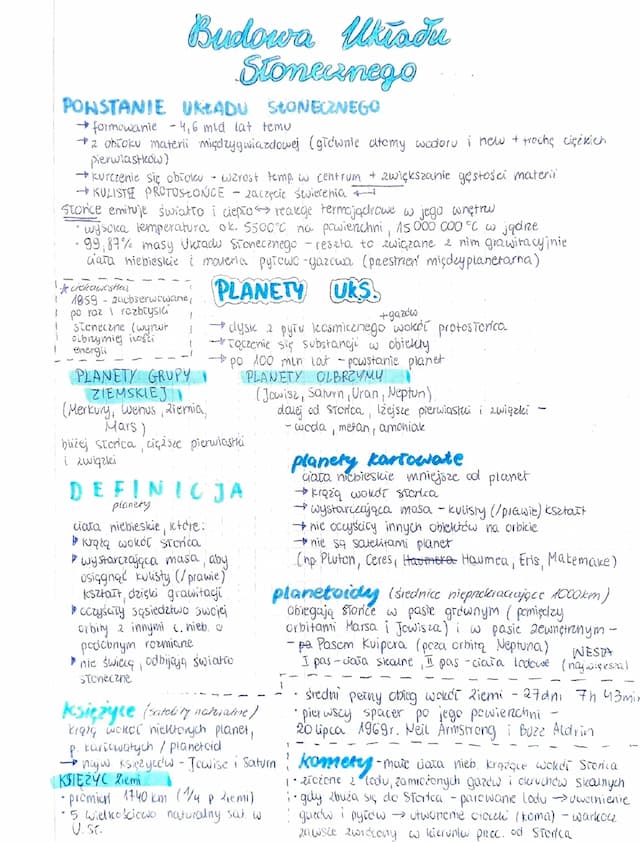 Budowa Układu
Słonecznego
POWSTANIE UKŁADU SŁONECZNEGO
→ formowanie - 4,6 mld lat temu
→ z obłoku materii międzygwiazdowej (głównie atomy wodoru i helu + trochę ciężkich
pierwiastków)
→ kurczenie się obłoku - wzrost temp. w centrum + zwiększanie gęstości materii
→ KULISTE PROTOSŁOŃCE - zaczęcie świecenia
Słońce emituje światło i ciepło ↔ reakcje termojądrowe w jego wnętrzu
• wysoka temperatura ok. 5500°C na powierzchni, 15 000 000°C w jądrze
• 99,87% masy Układu Słonecznego - reszta to związane z nim grawitacyjnie
ciała niebieskie i materia pyłowo-gazowa (przestrzeń międzyplanetarna)
* ciekawostka
1859 - zaobserwowane
po raz 1 rozbłyski
słoneczne (wyrzut
olbrzymiej ilości
energii
PLANETY UKS.
+ gazów
→ dysk z pyłu kosmicznego wokół protosłońca
→ łączenie się substancji w obiekty
→ po 100 mln lat - powstanie planet
PLANETY GRUPY
ZIEMSKIEJ
(Merkury, Wenus, Ziemia,
Mars)
bliżej Słońca, cięższe pierwiastki
i związki
PLANETY OLBRZYMY
(Jowisz, Saturn, Uran, Neptun)
dalej od Słońca, lżejsze pierwiastki i związki -
- woda, metan, amoniak
DEFINICJA
planety
ciała niebieskie, które:
krążą wokół Słońca
wystarczająca masa, aby
osiągnąć kulisty (/prawie)
kształt, dzięki grawitacji
oczyściły sąsiedztwo swojej
orbity z innymi c. nieb. o
podobnym rozmiarze
nie świecą, odbijają światło
słoneczne
planety karłowate
ciała niebieskie mniejsze od planet
→ krążą wokół Słońca
→ wystarczająca masa - kulisty (/prawie) kształt
→ nie oczyściły innych obiektów na orbicie
→ nie są satelitami planet
(np Pluton, Ceres, Haumera Haumea, Eris, Makemake)
planetoidy (średnice nieprzekraczające 1000km)
obiegają Słońce w pasie głównym (pomiędzy
orbitami Marsa i Jowisza) i w pasie zewnętrznym -
- pa Pasem Kuipera (poza orbitą Neptuna)
I pas - ciała skalne, II pas - ciała lodowe
WESTA
(największa)
księżyce (satelity naturalne)
krążą wokół niektórych planet,
p. karłowatych / planetoid
→ najw. księżyców - Jowisz i Saturn
KSIĘŻYC Ziemi
• promień 1740 km (1/4 p Ziemi)
• 5 wielkościowo naturalny sat. w
U. Sł.
• średni pełny obieg wokół Ziemi - 27dni 7h 43min
• pierwszy spacer po jego powierzchni -
20 lipca 1969r. Neil Armstrong i Buzz Aldrin
komety - małe ciała nieb. krążące wokół Słońca
• złożone z lodu, zamrożonych gazów i okruchów skalnych
• gdy zbliża się do Słońca - parowanie lodu → uwolnienie
gazów i pyłów → utworzenie otoczki (koma) - warkocz
zawsze zwrócony w kierunku przec. od Słońca